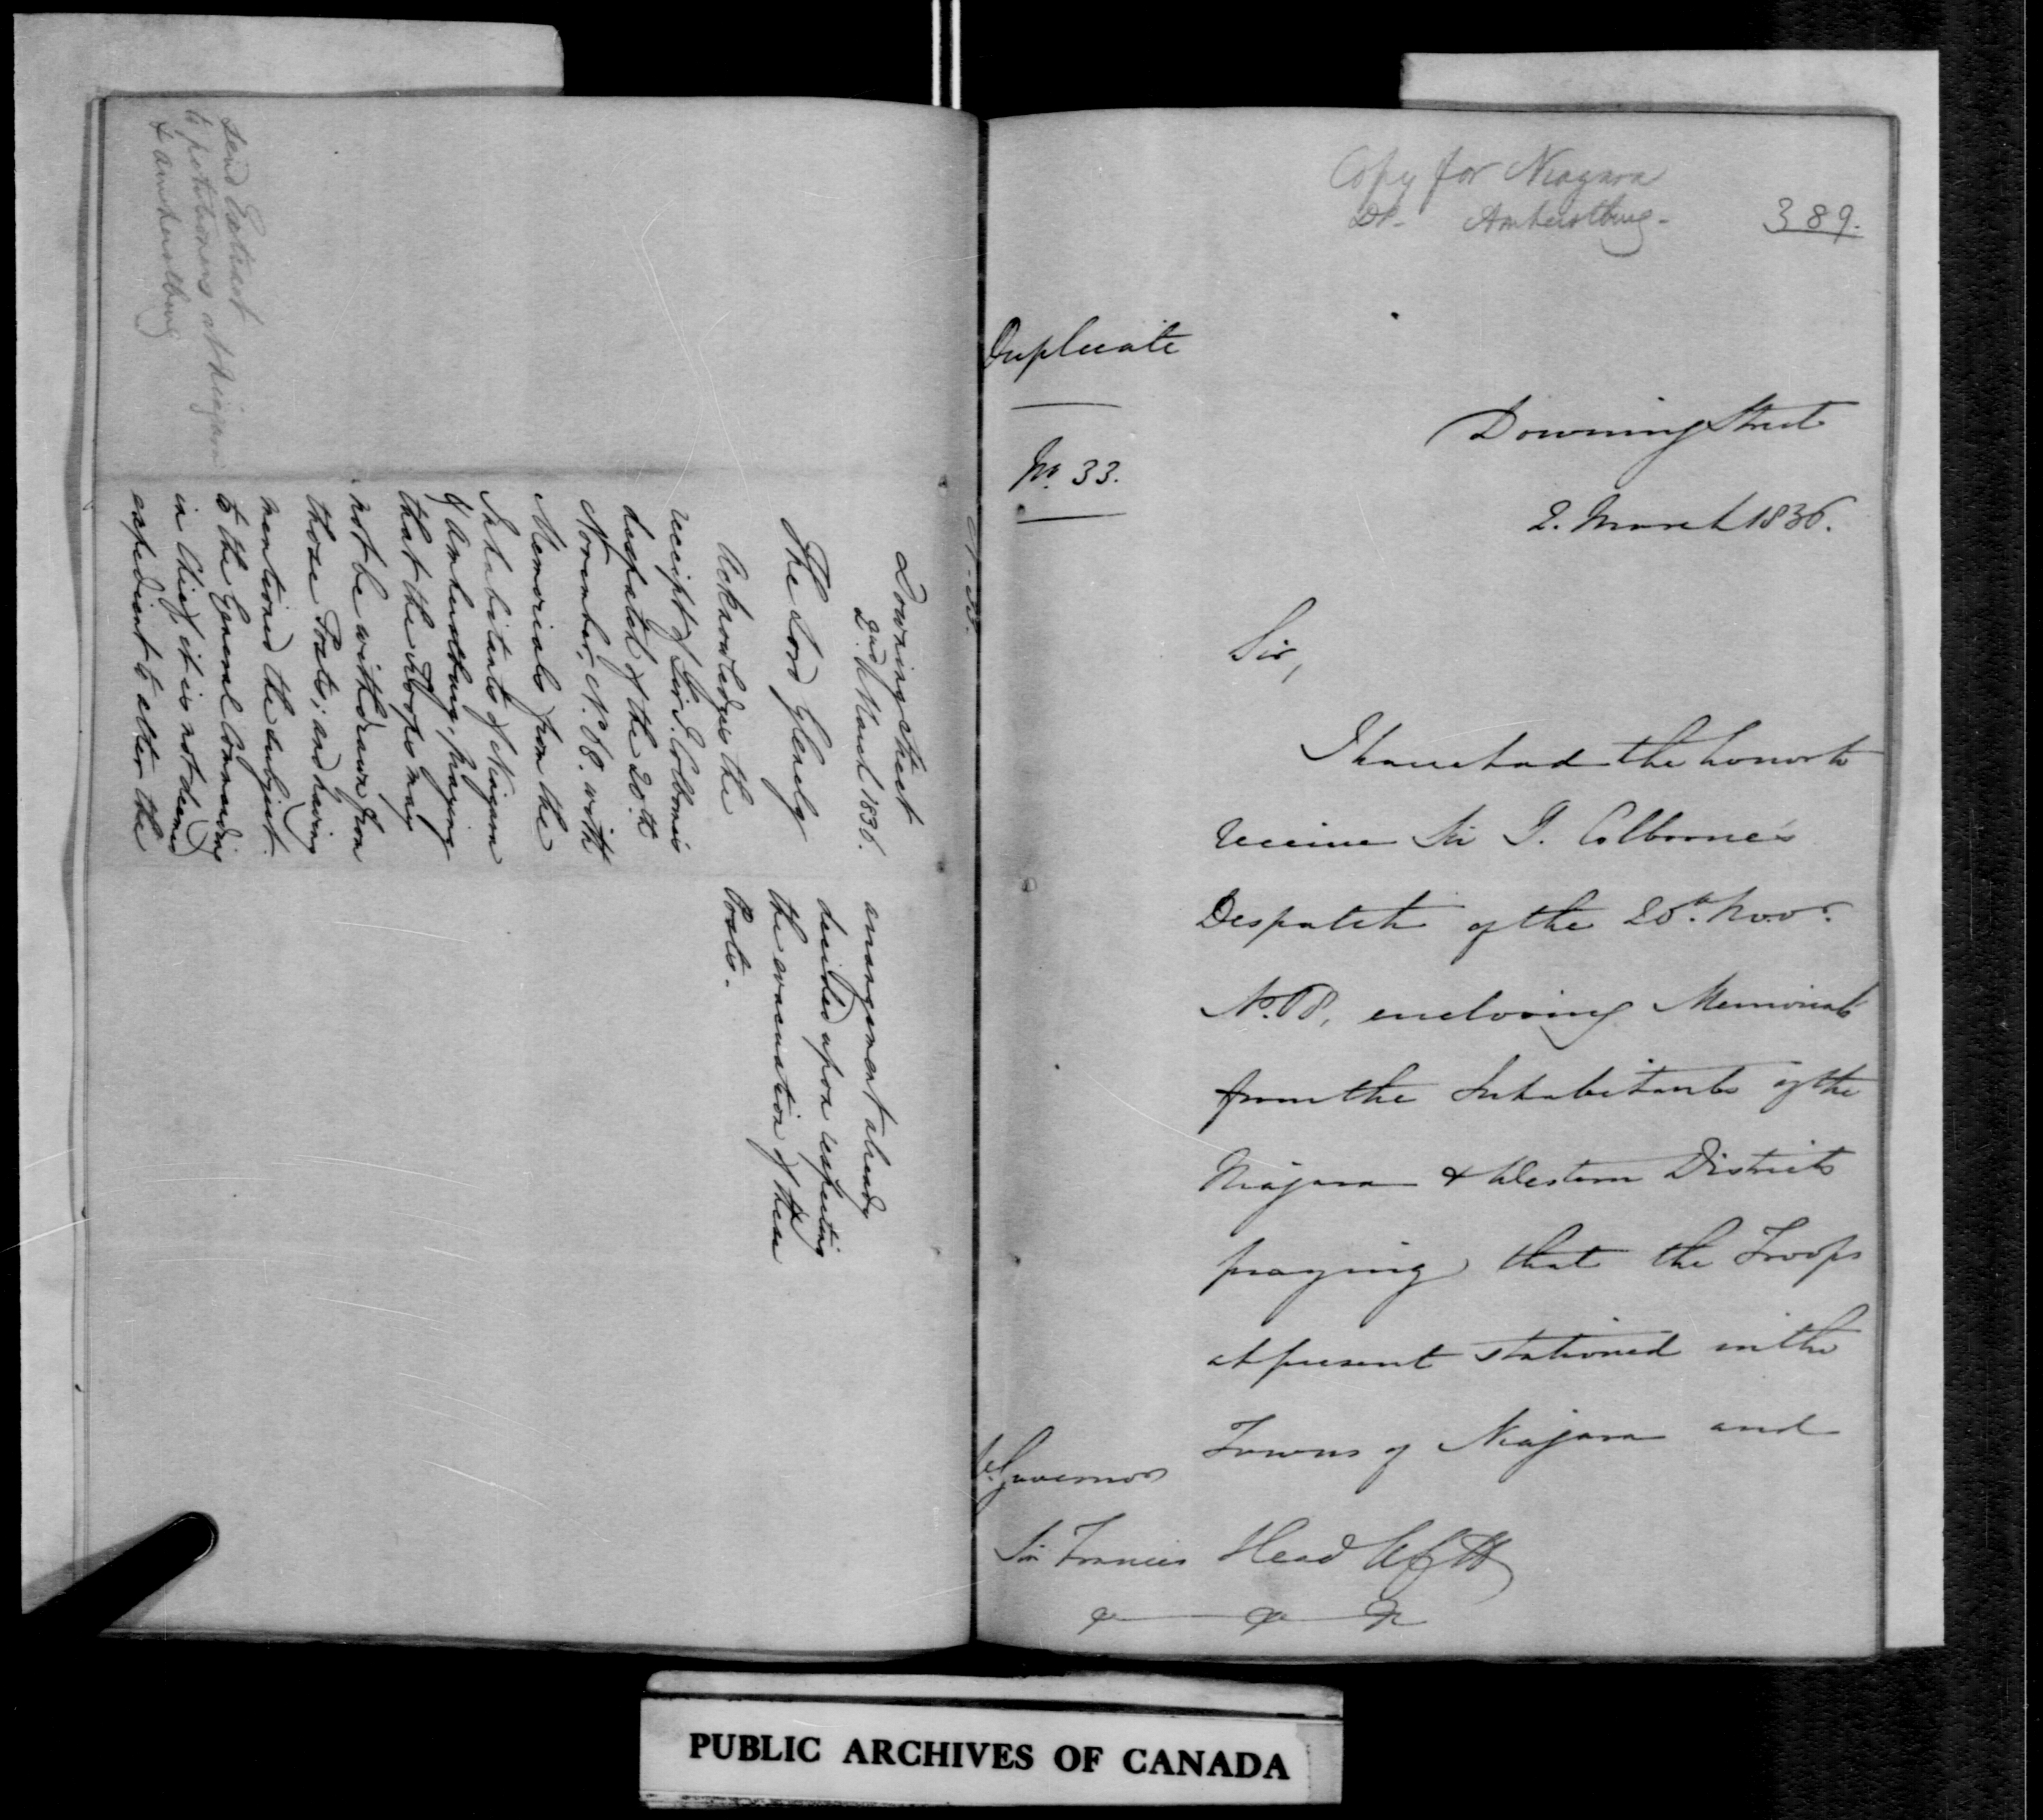 Send Extract
to petitioners at Niagara
& Amherstburg
Downing Street
2nd March 1836.
The Lord Glenelg
Acknowledges the
receipt of Sir J. Colborne's
despatch of the 20th
November, No. 68. with
Memorials from the
Inhabitants of Niagara
& Amherstburg, praying
that the Troops may
not be withdrawn from
those Posts; and having
mentioned the subject
to the General Commanding
in Chief, it is not deemed
expedient to alter the
arrangement already
decided upon respecting
the evacuation of these
Posts.
Copy for Niagara
Do- Amherstburg-
389.
Duplicate
No. 33.
Downing Street
2. March 1836.
Sir,
I have had the honor to
receive Sir J. Colborne's
Despatch of the 20th Novr.
No. 68, enclosing Memorials
from the Inhabitants of the
Niagara & Western Districts
praying that the Troops
at present stationed in the
Towns of Niagara and
Governor
Sir Francis Head
PUBLIC ARCHIVES OF CANADA